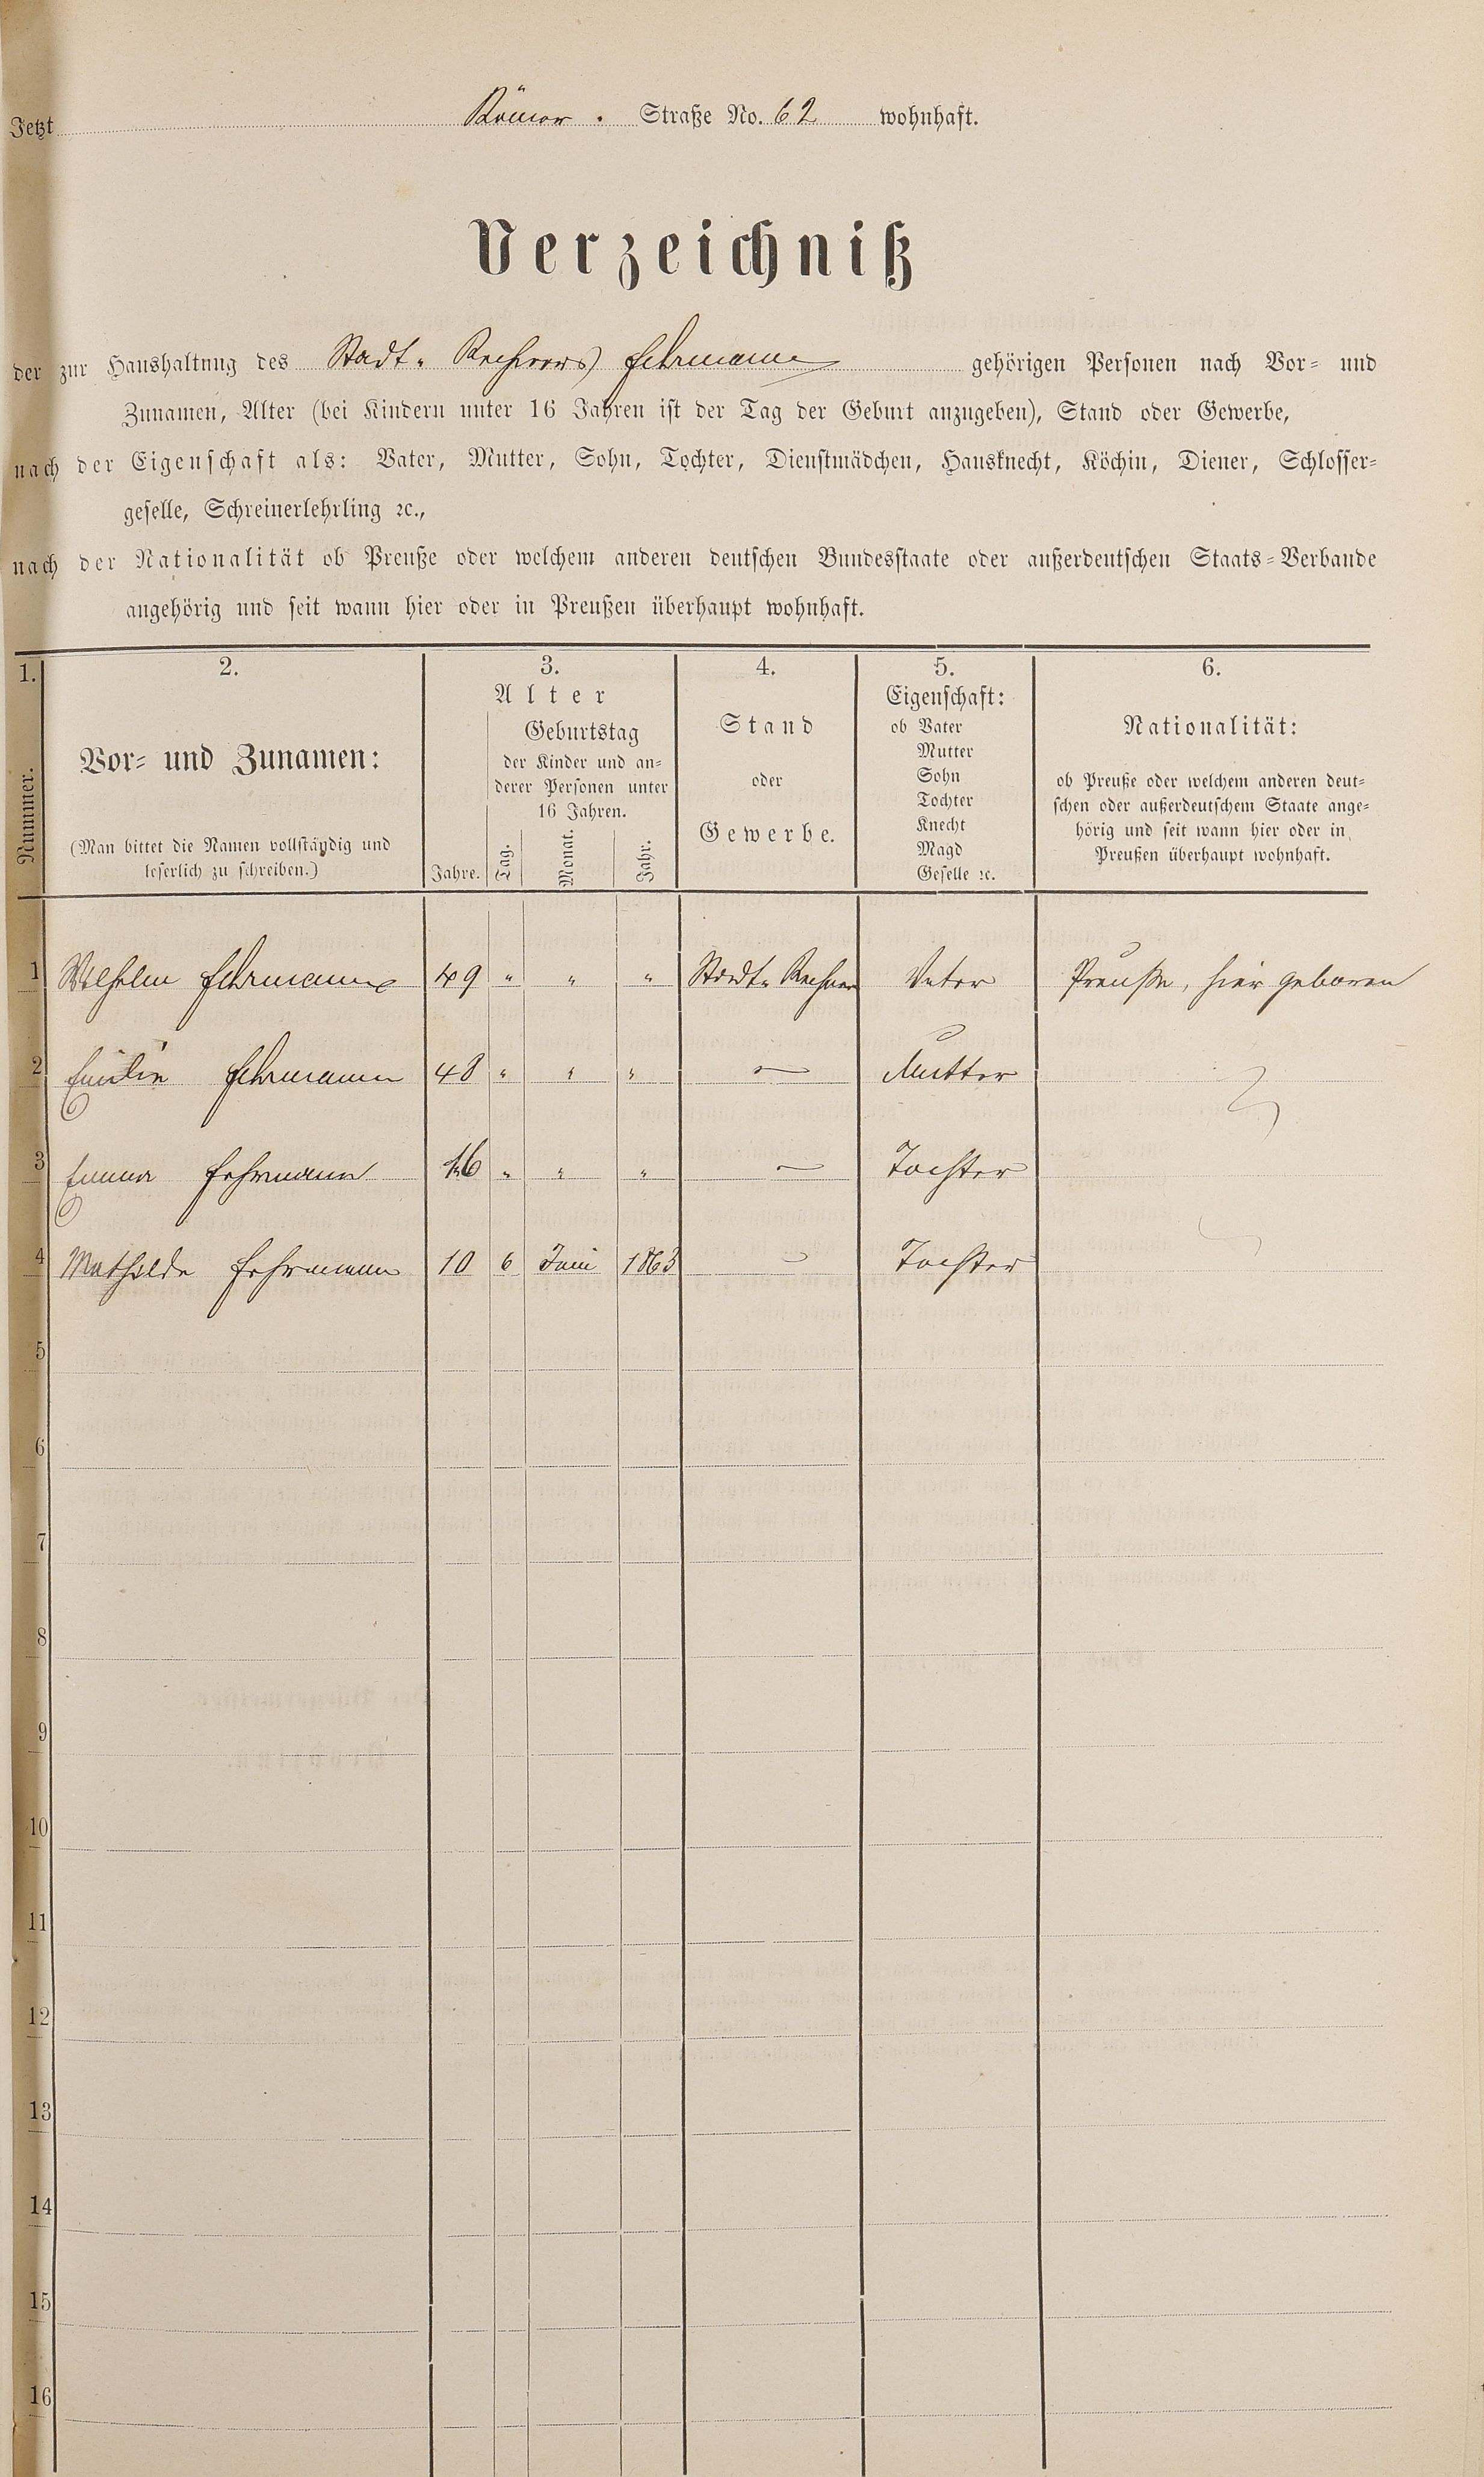 Jetzt Römer. Straße No. 62 wohnhaft.
Verzeichniß
der zur Haushaltung des Stadt-Rechners Fehrmann gehörigen Personen nach Vor- und
Zunamen, Alter (bei Kindern unter 16 Jahren ist der Tag der Geburt anzugeben), Stand oder Gewerbe,
nach der Eigenschaft als: Vater, Mutter, Sohn, Tochter, Dienstmädchen, Hausknecht, Köchin, Diener, Schlosser-
geselle, Schreinerlehrling ꝛc.,
nach der Nationalität ob Preuße oder welchem anderen deutschen Bundesstaate oder außerdeutschen Staats-Verbande
angehörig und seit wann hier oder in Preußen überhaupt wohnhaft.
1. 2. 3. 4. 5. 6.
Nummer.
Vor- und Zunamen:
(Man bittet die Namen vollständig und
leserlich zu schreiben.)
Alter
Jahre.
Geburtstag
der Kinder und an-
derer Personen unter
16 Jahren.
Tag. Monat. Jahr.
Stand
oder
Gewerbe.
Eigenschaft:
ob Vater
Mutter
Sohn
Tochter
Knecht
Magd
Geselle ꝛc.
Nationalität:
ob Preuße oder welchem anderen deut-
schen oder außerdeutschem Staate ange-
hörig und seit wann hier oder in
Preußen überhaupt wohnhaft.
1 Wilhelm Fehrmann 49 " " " Stadt-Rechner Vater Preuße, hier geboren
2 Emilie Fehrmann 48 " " " — Mutter
3 Emma Fehrmann 16 " " " — Tochter
4 Mathilde Fehrmann 10 6 Juni 1863 — Tochter
5
6
7
8
9
10
11
12
13
14
15
16